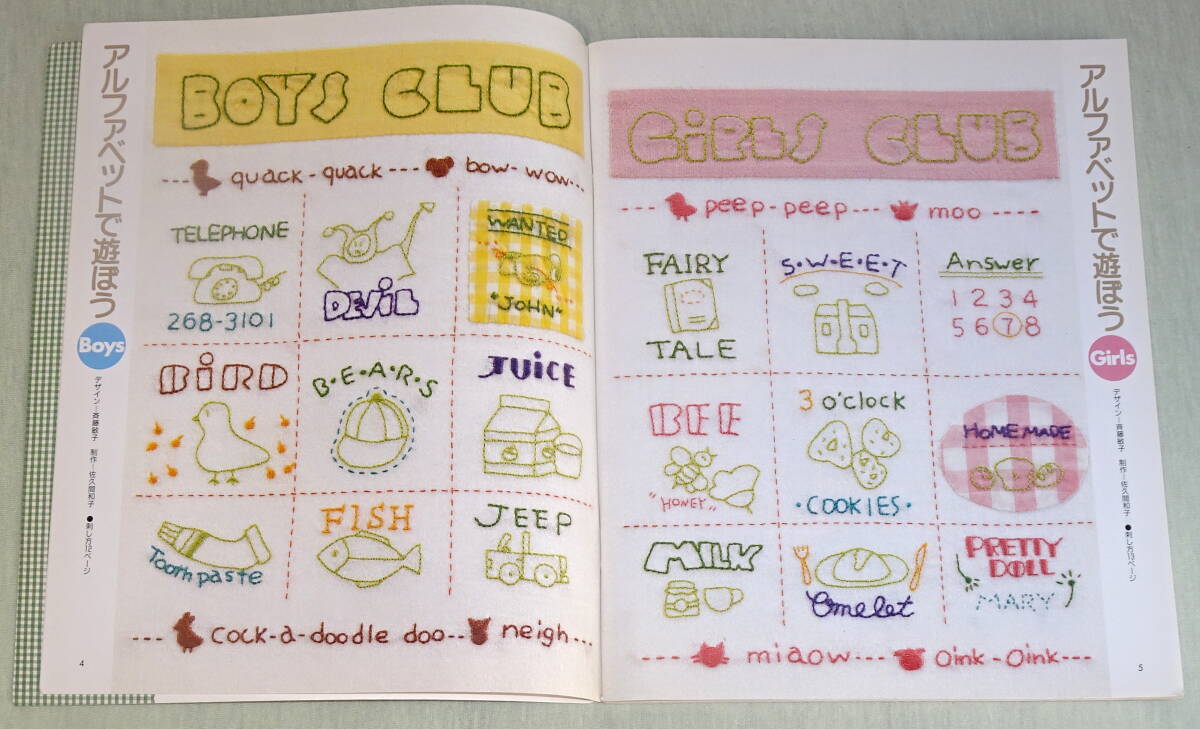 アルファベットで遊ぼう
Boys
デザイン=斉藤敏子 制作=佐久間和子 ●刺し方12ページ
BOYS CLUB
quack-quack
bow-wow
TELEPHONE
268-3101
DEViL
WANTED
"JOHN"
BiRD
B・E・A・R・S
JUiCE
Tooth paste
FISH
JEEP
cock-a-doodle doo
neigh
4
GiRLS CLUB
peep-peep
moo
FAIRY
TALE
S・W・E・E・T
Answer
1 2 3 4
5 6 7 8
BEE
"HONEY"
3 o'clock
・COOKIES・
HOMEMADE
MILK
Omelet
PRETTY
DOLL
MARY
miaow
oink-oink
5
アルファベットで遊ぼう
Girls
デザイン=斉藤敏子 制作=佐久間和子 ●刺し方13ページ